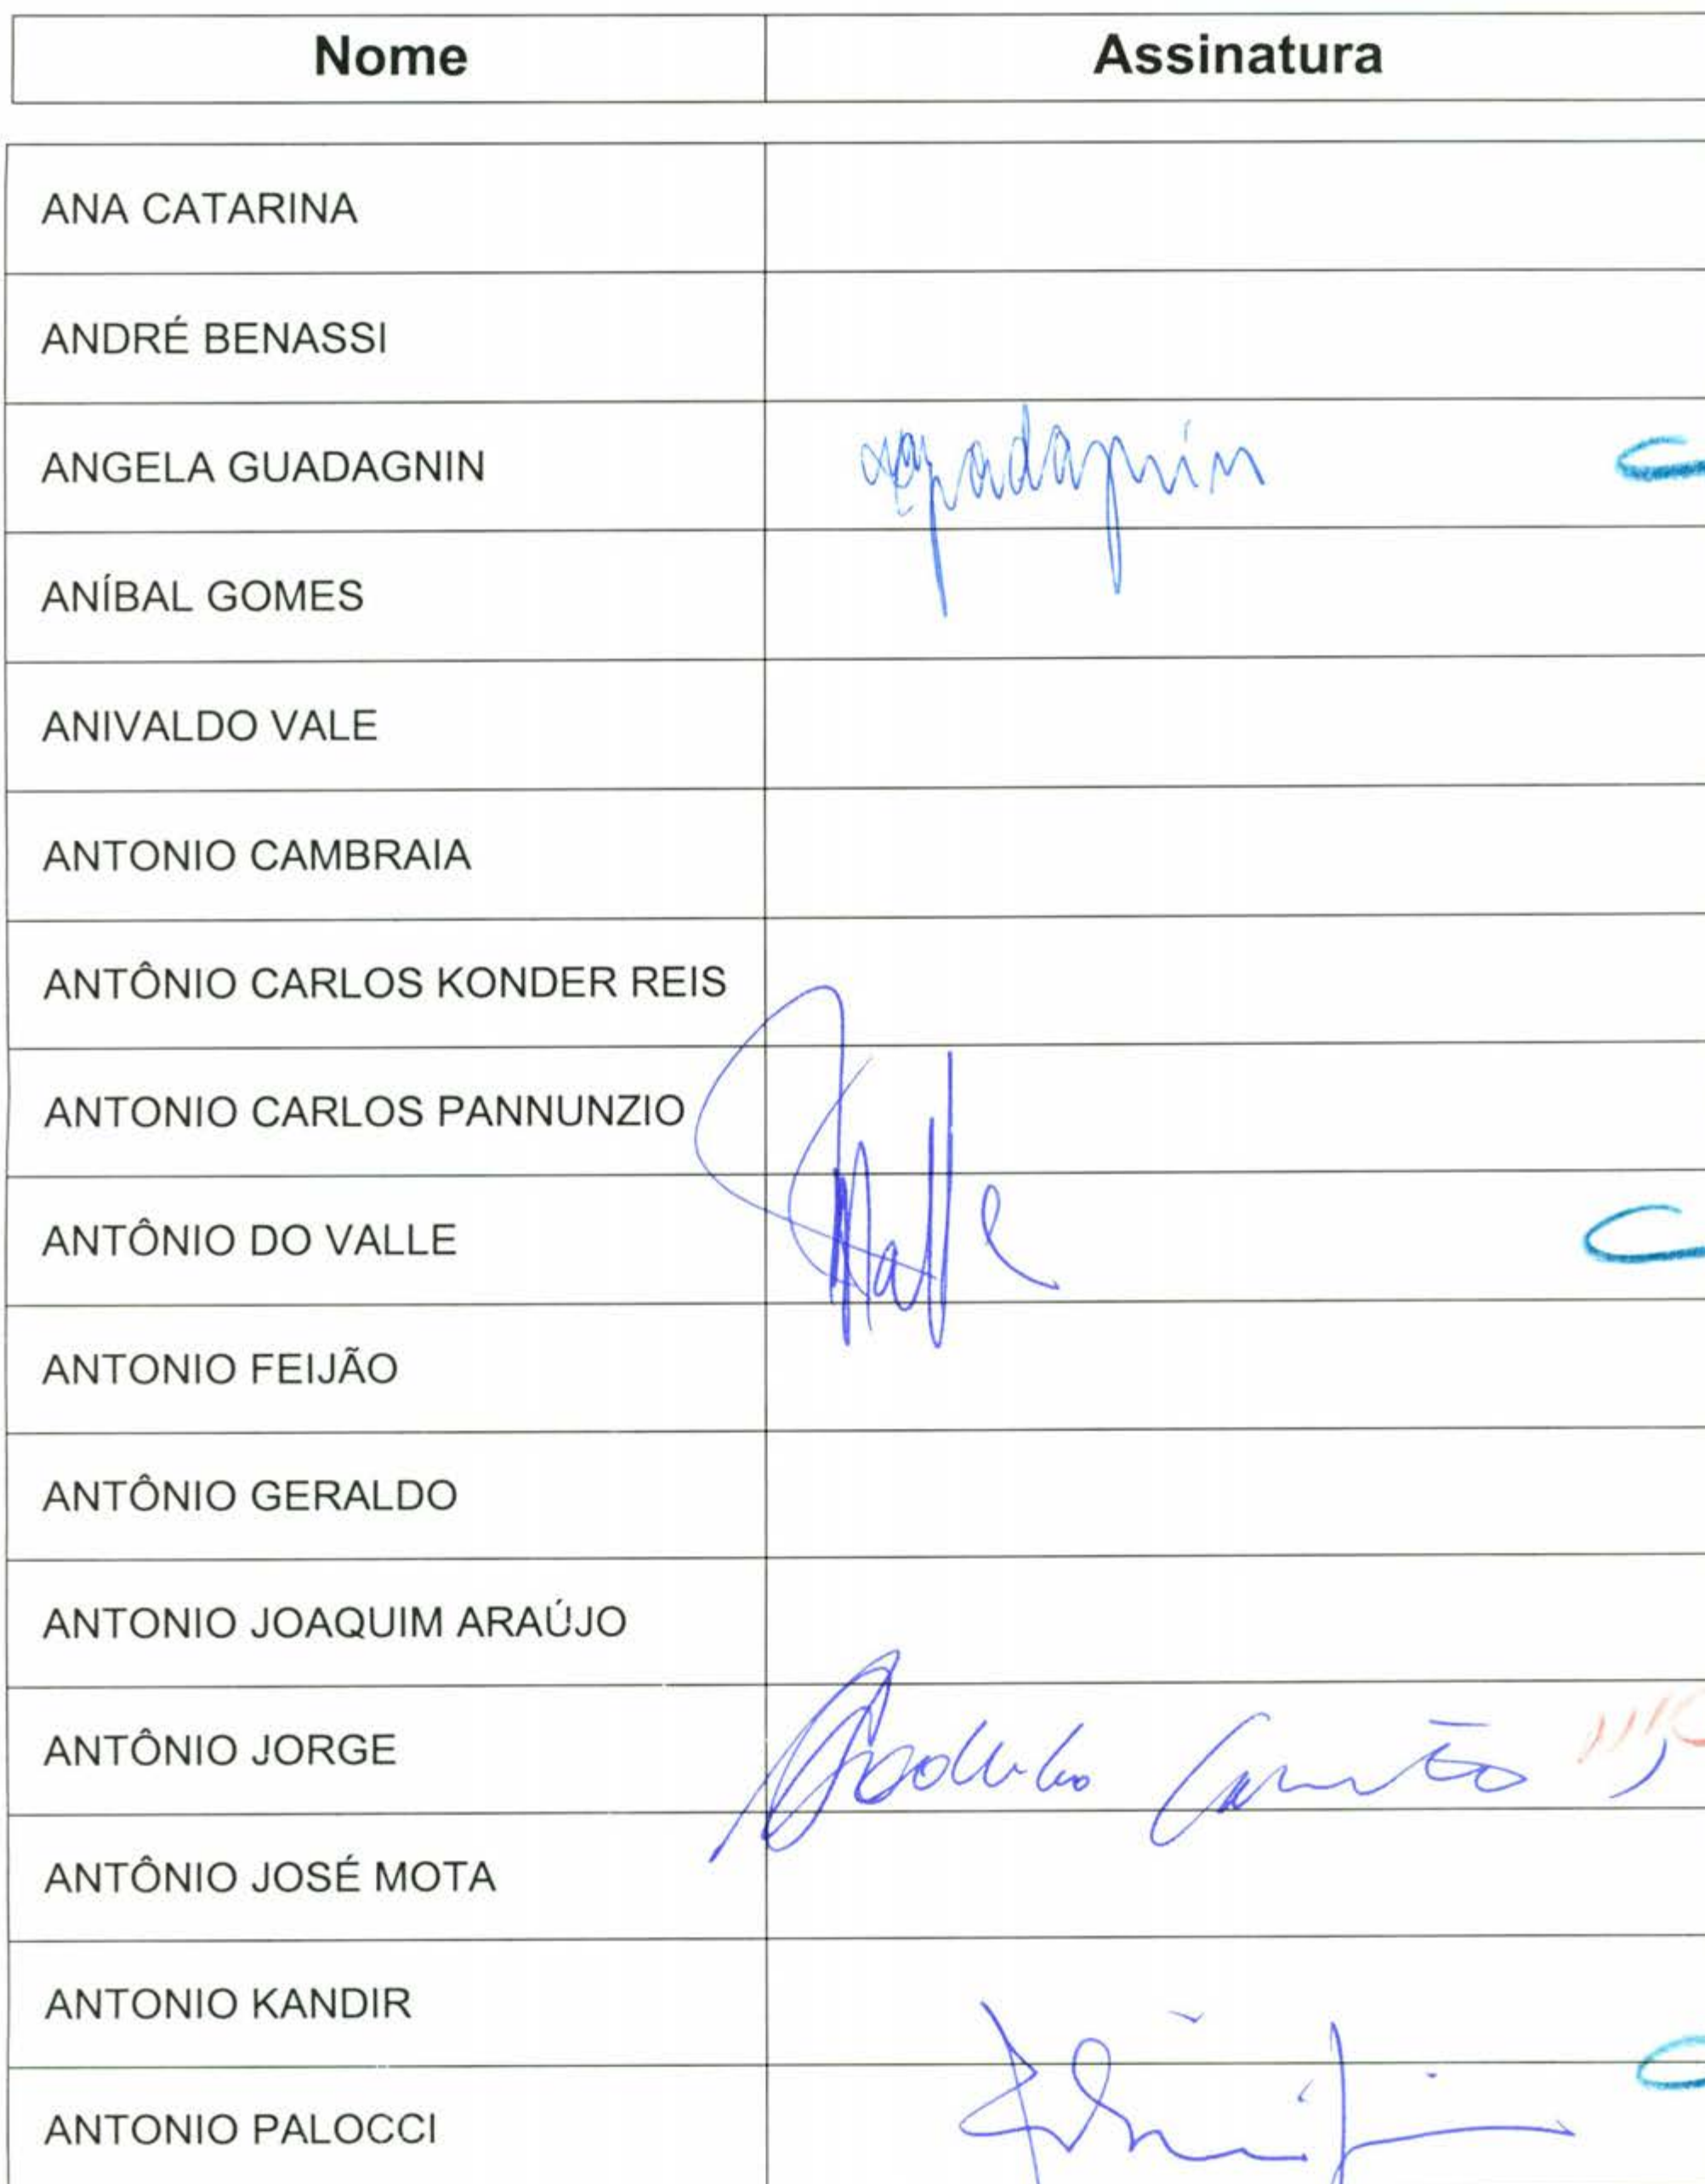 Nome Assinatura
ANA CATARINA
ANDRÉ BENASSI
ANGELA GUADAGNIN
ANÍBAL GOMES
ANIVALDO VALE
ANTONIO CAMBRAIA
ANTÔNIO CARLOS KONDER REIS
ANTONIO CARLOS PANNUNZIO
ANTÔNIO DO VALLE Valle
ANTONIO FEIJÃO
ANTÔNIO GERALDO
ANTONIO JOAQUIM ARAÚJO
ANTÔNIO JORGE
ANTÔNIO JOSÉ MOTA
ANTONIO KANDIR
ANTONIO PALOCCI